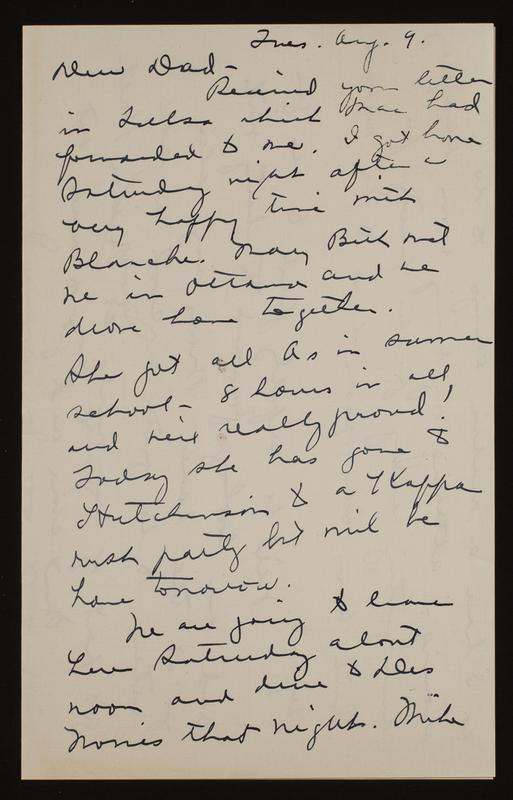 Tues. Aug. 9.
Dear Dad -
Received your letter
in Tulsa which Mac had
forwarded to me. I got home
Saturday night after a
very happy time with
Blanche. Mary Beth met
me in Ottawa and we
drove home together.
She got all As in summer
school - 8 hours in all
and we're really proud!
Today she has gone to
Hutchinson to a Kappa
rush party but will be
home tomorrow.
We are going to leave
here Saturday about
noon and drive to Des
Moines that night. Mike